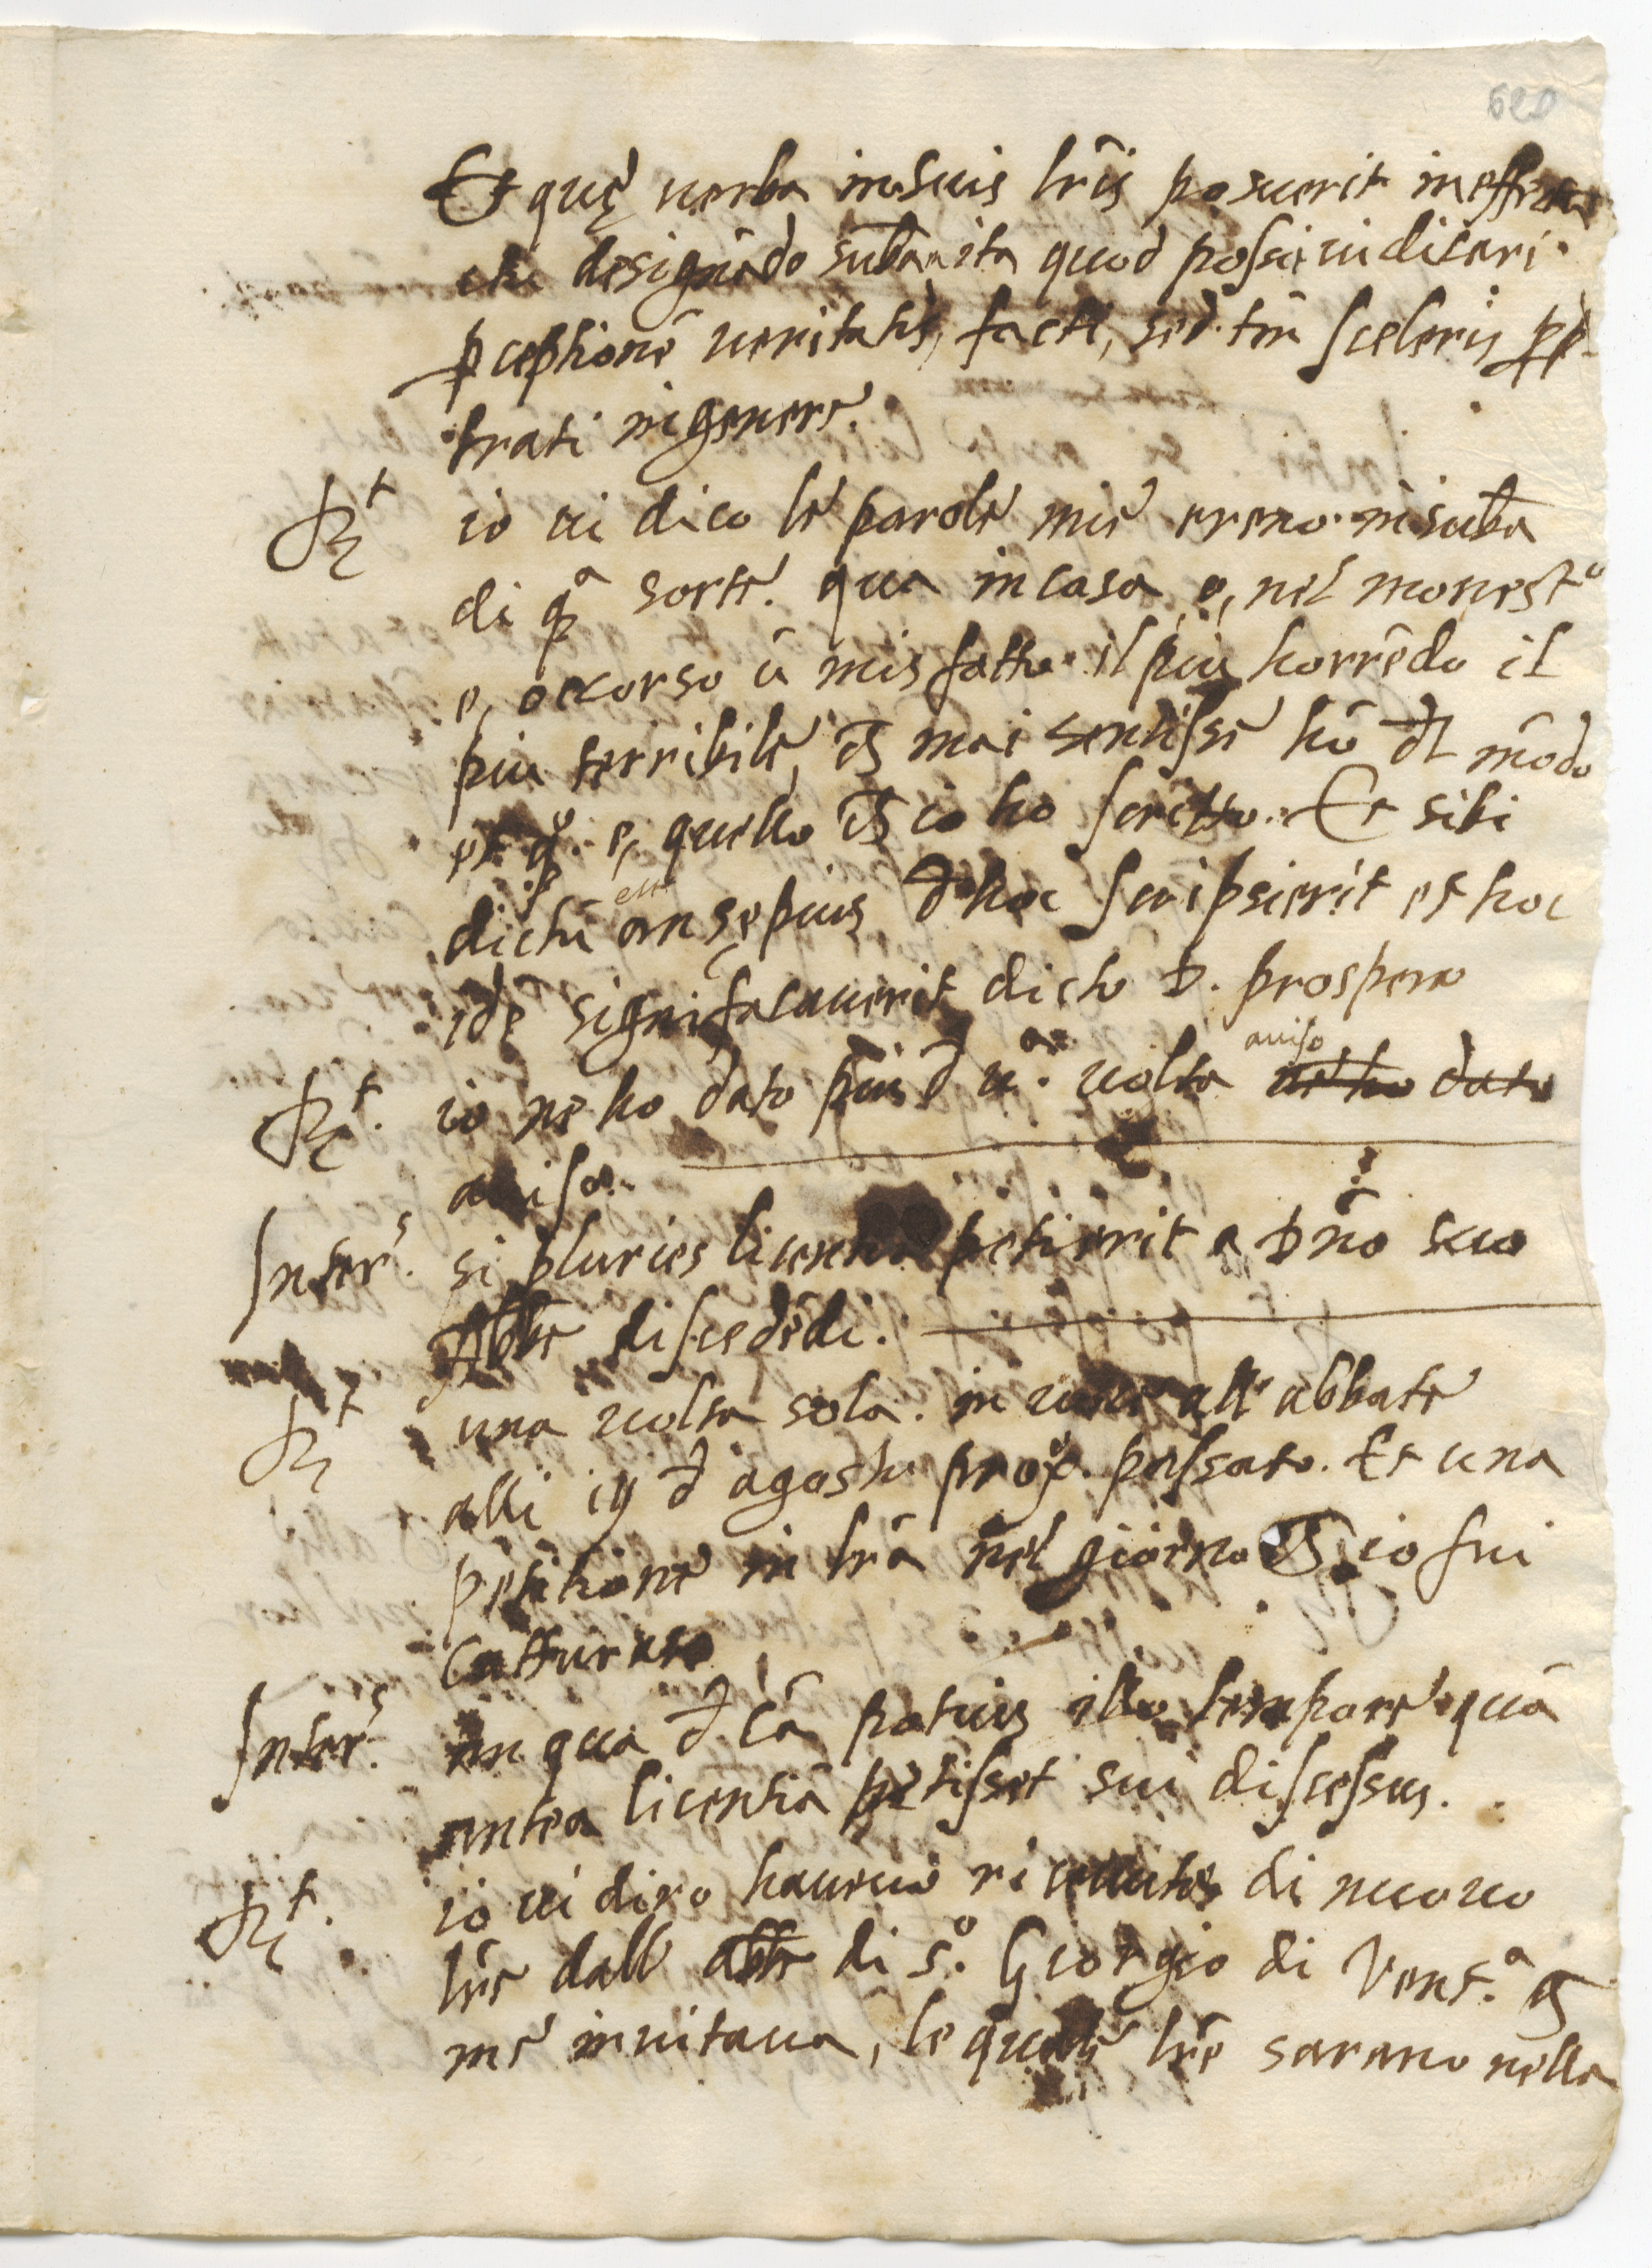 620
Et quę uerba in suis lr̃is posuerit in effectu
designãdo sub.ã ita quod possi iudicari
ꝑceptionẽ ueritatis facti, sed tm̃ sceleris ꝑpe-
trati in genere.
R.t io ui dico le parole mie ereno in sub.ã
di q.a sorte. qua in casa o, nel monest.o
e, occorso ũ misfatto il piu horrẽdo il
piu terribile, ch̃ mai sentisse hõ đl mõdo
et q.o e, quello ch̃ io ho scritto. Et sibi
dictũ an sępius đ hoc scripsierit et hoc
idẽ significauerit dicto D. prospero
R.t io ne ho dato piu đ u.a uolta auiso ne ho dato
auiso.
Inter.s si pluries licentia petierit a Dño suo
Abbe discedẽdi.
R.t una uolta sola in uoce all abbate
alli iij đ agosto prox.o passato. Et una
petitione in lr̃a nel giorno ch̃ io fui
catturato
Inter.s an qua đ cã potius illo tempore quã
antea licentiã petisset sui discessus.
R.t io ui diro haueuo riceuuto di nuouo
lr̃e dall abbe di S.o Georgio di Venet.a ch̃
me inuitaua, le quale lr̃e sarano nella